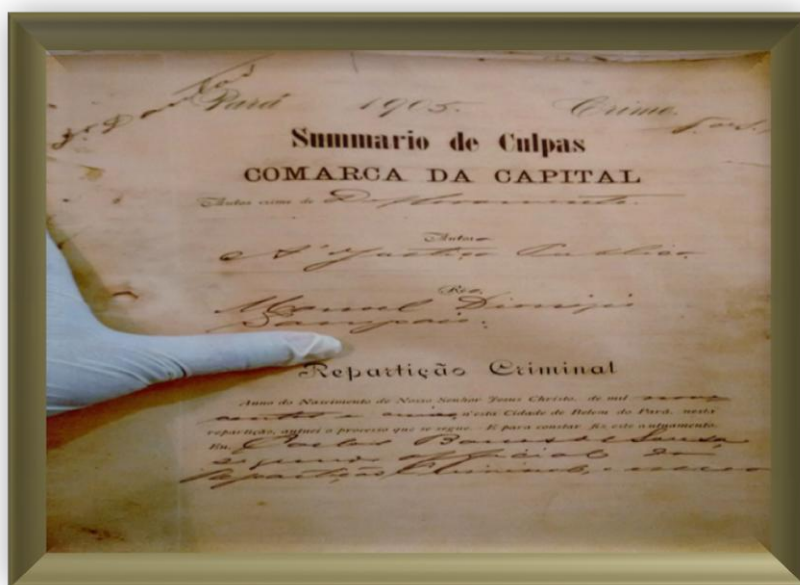 Pará 1905. Crime.
Summario de Culpas
COMARCA DA CAPITAL
Autos crime de Defloramento.
Autor
A Justiça Publica.
Réo,
Manoel Dionizio
Sampaio.
Repartição Criminal
Anno do Nascimento de Nosso Senhor Jesus Christo, de mil nove
centos e cinco, n'esta Cidade de Belem do Pará, nesta
repartição, autuei o processo que se segue. E para constar fiz este autuamento.
Eu,
segundo official da
repartição Criminal, o escrevi